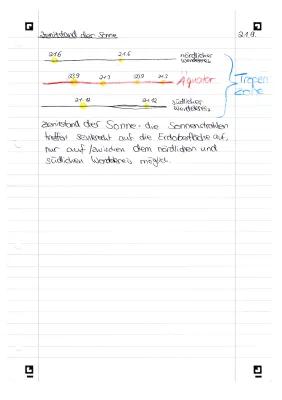 Zenitstand der Sonne
21.9.
21.6
21.6
nördlicher
Wendekreis
23.9
21.3
23.9
21.3
Äquator
Tropen
zone
21.12
21.12
südlicher
Wendekreis
Zenitstand der Sonne = die Sonnenstrahlen
treffen senkrecht auf die Erdoberfläche auf,
nur auf/zwischen dem nördlichen und
südlichen Wendekreis möglich.